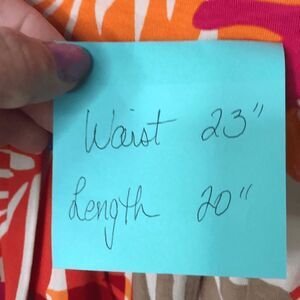 Waist 23"
Length 20"